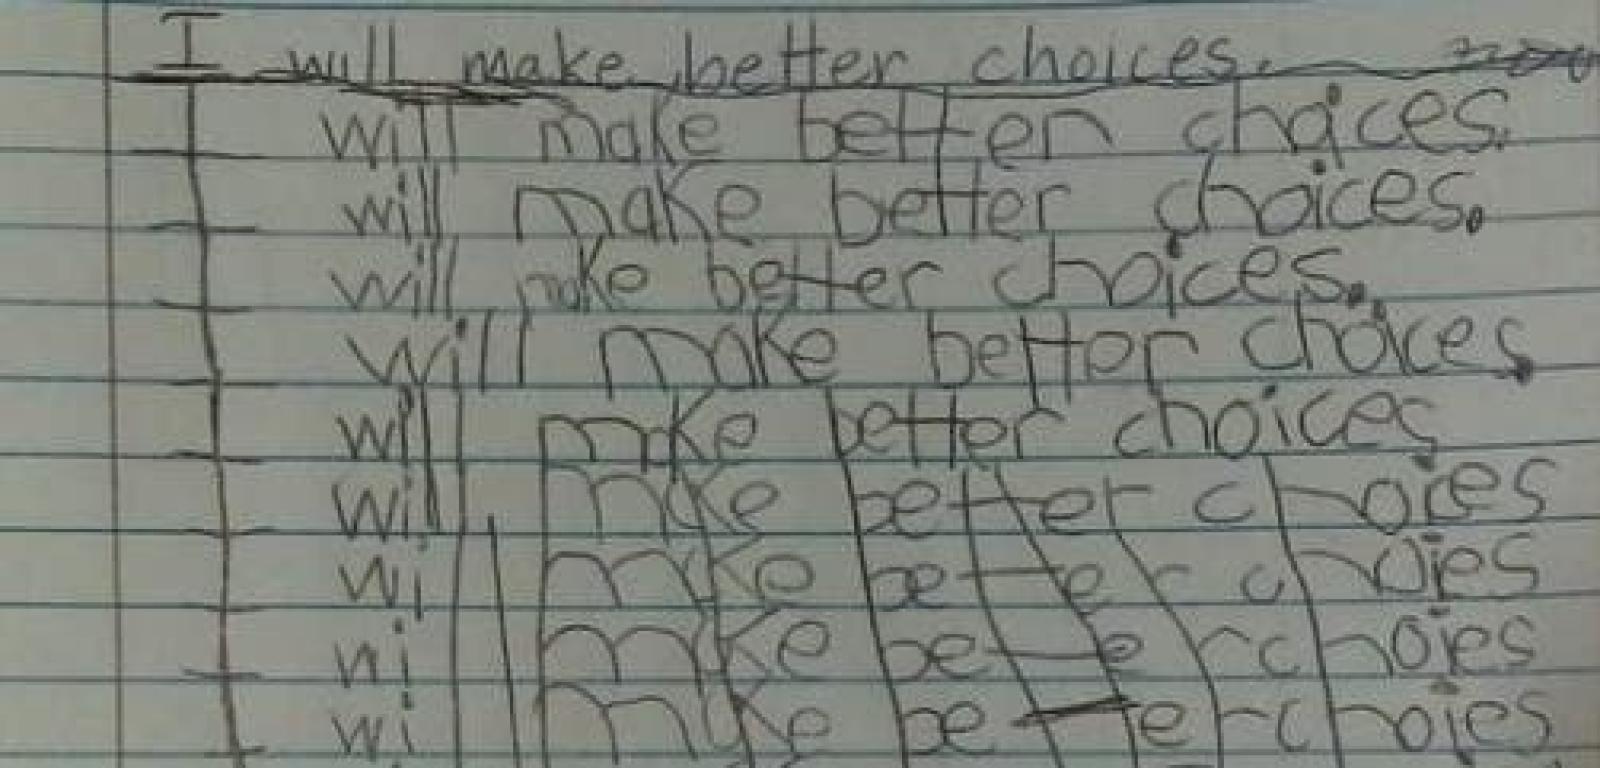 I will make better choices.
I will make better choices.
I will make better choices.
I will make better choices.
I will make better choices.
I will make better choices
I will make better choies
I will make better choies
I will make better choies
I will make better choies